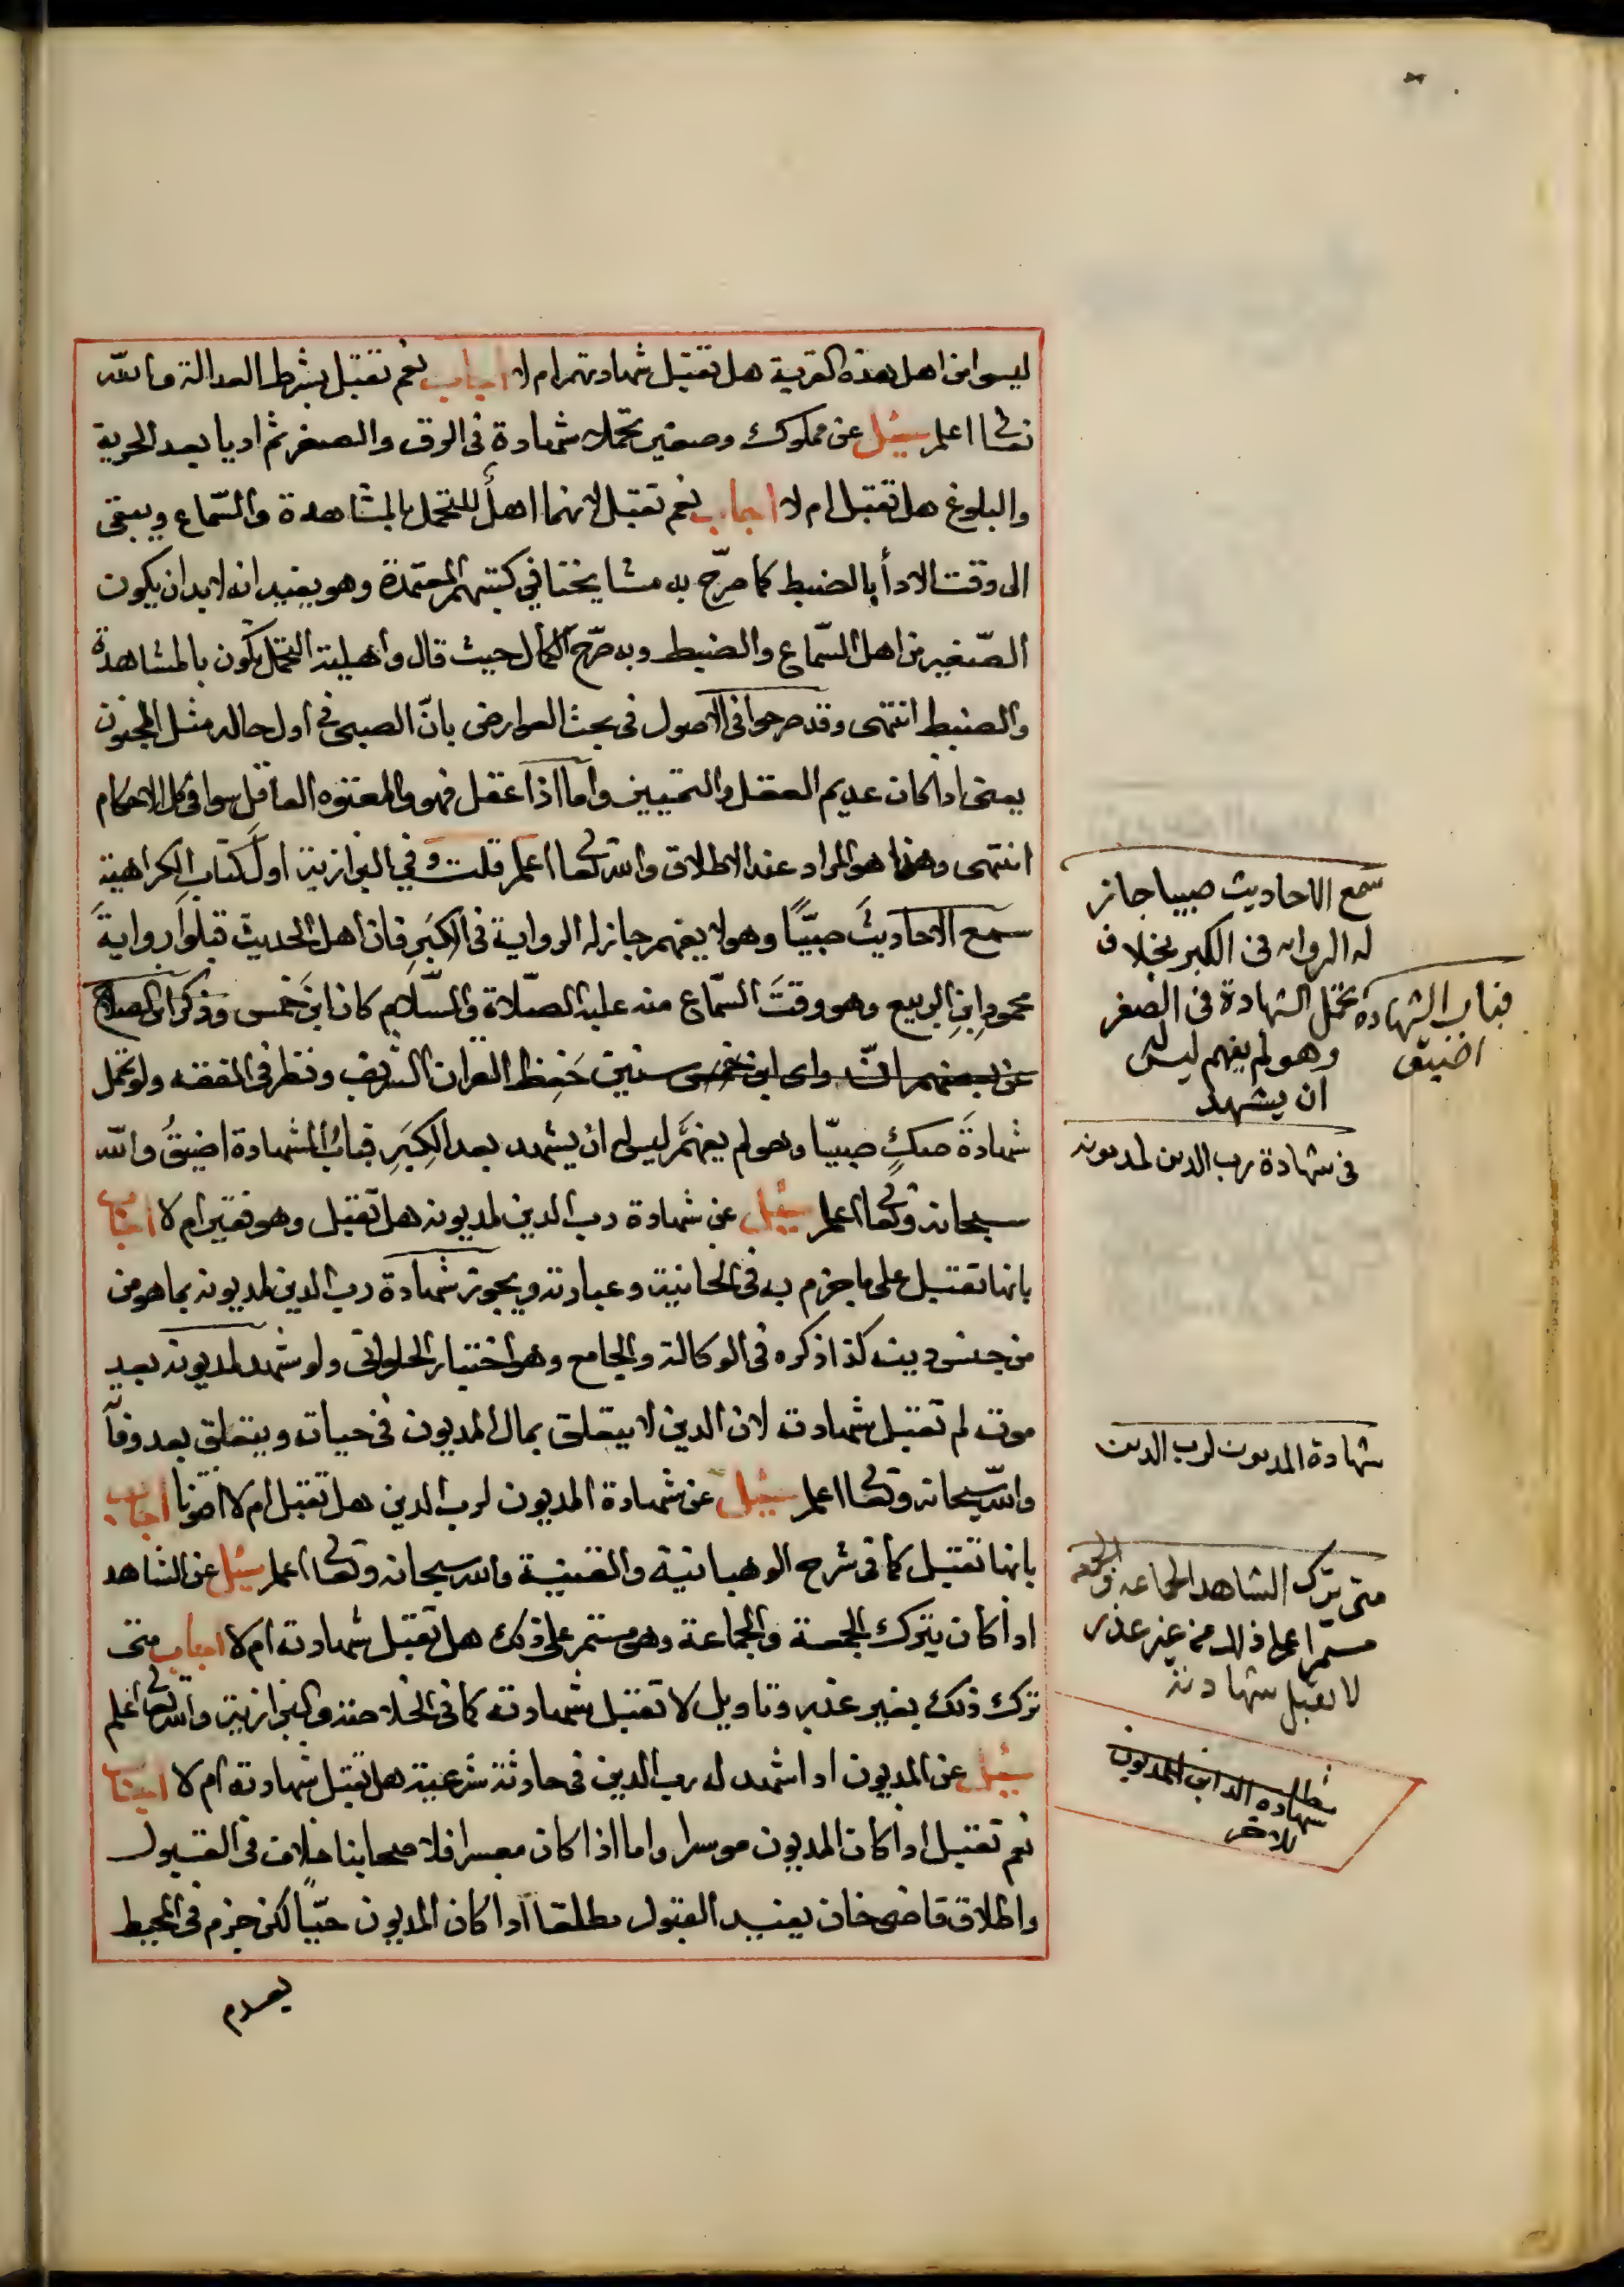 ليسوا من اهل هذه القرية هل تقبل شهادتهم ام لا اجاب نعم تقبل بشرط العدالة والله
تعالى اعلم سئل عن مملوك وصغير تحملا شهادة في الرق والصغر ثم اديا بعد الحرية
والبلوغ هل تقبل ام لا اجاب نعم تقبل لانهما اهل للتحمل بالمشاهدة والسّماع ويبقى
الى وقت الادأ بالضبط كما صرّح به مشايخنا في كتبهم المعتمدة وهو يفيد انه لابد ان يكون
الصّغير من اهل السّماع والضبط وبه صرّح الكمال حيث قال واهلية التحمل تكون بالمشاهدة
والضبط انتهى وقد صرحوا في الاصول في بحث العوارض بانّ الصبي في اول حاله مثل المجنون
يعني اذا كان عديم العقل والتمييز واما اذا عقل فهو والمعتوه العاقل سوا في كل الاحكام
انتهى وهذا هو المراد عند الاطلاق والله تعالى اعلم قلت وفي البزازية اول كتاب الكراهية
سمع الاحاديثَ صبيّاً وهو لا يفهم جاز له الرواية في الكِبَرِ فان اهل الحديث قبلوا روايةَ
محمودِ ابنِ الربيع وهو وقتَ السّماع منه عليه الصّلاة والسّلام كان ابنَ خمس وذكر ابن الصلاح
عن بعضهم انّه راى ابن خمس سنين حَفِظ القران الشريف ونظر في الفقه ولو تحمل
شهادةَ صكٍ صبيّا وهو لم يفهَمْ ليس له ان يشهد بعد الكِبَرِ فبابُ الشهادة اضيقُ والله
سبحانه وتعالى اعلم سئل عن شهادة رب الدين لمديونه هل تقبل وهو فقير ام لا اجاب
بانها تقبل على ما جزم به في الخانية وعبارته ويجوز شهادة رب الدين لمديونه بما هو من
من جنس دينه كذا ذكره في الوكالة والجامع وهو اختيار الحلواني ولو شهد لمديونه بعد
موته لم تقبل شهادته لان الدين لا يتعلق بمال المديون في حياته ويتعلق بعد وفاته
والله سبحانه وتعالى اعلم سئل عن شهادة المديون لرب الدين هل تقبل ام لا افتونا اجاب
بانها تقبل كما في شرح الوهبانية والقنية والله سبحانه وتعالى اعلم سئل عن الشاهد
اذا كان يترك الجمعة والجماعة وهو مستمر على ذلك هل تقبل شهادته ام لا اجاب متى
ترك ذلك بغير عذر وتاويل لا تقبل شهادته كما في الخلاصة والبزازية والله تعالى اعلم
سئل عن المديون اذا شهد له رب الدين في حادثة شرعية هل تقبل شهادته ام لا اجاب
نعم تقبل اذا كان المديون موسرا واما اذا كان معسرا فلاصحابنا خلاف في القبول
واطلاق قاضي خان يفيد القبول مطلقا اذا كان المديون حيّا لكن جزم في المحيط
بعدم
سمع الاحاديث صبيا جاز
له الروايه في الكبر بخلاف
تحمل الشهادة في الصغر
وهو لم يفهم ليس له
ان يشهد
فباب الشهادة
اضيق
في شهادة رب الدين لمديونه
شهادة المديون لرب الدين
متى ترك الشاهد الجماعه والجمعه
مستمرا على ذلك من غير عذر
لا تقبل شهادته
مطلب
شهادة الداين للمديون